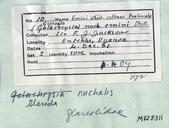 No. 10. Name Emini White-collared Pratincole
(Galachrysia nuch. emini Shell.
Collector Sir F. J. Jackson
Locality Entebbe, Uganda
Date 4. Dec. 01.
Set 2 Identity sure
Galachrysia nuchalis
Glareola
Glareolidae
M1Z8311